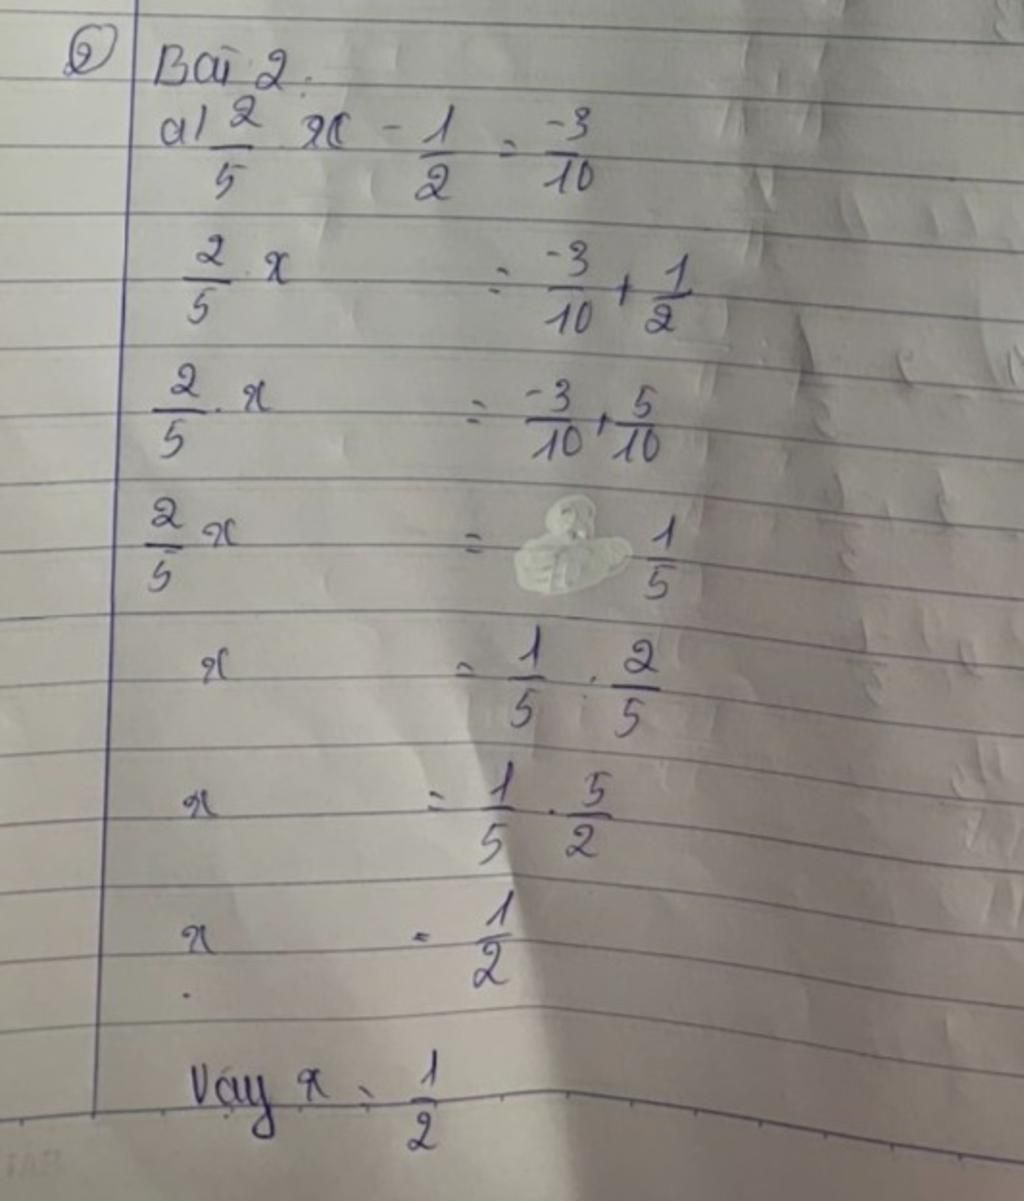 ② Bài 2.
a) 2/5 x - 1/2 = -3/10
2/5 . x = -3/10 + 1/2
2/5 . x = -3/10 + 5/10
2/5 x = 1/5
x = 1/5 : 2/5
x = 1/5 . 5/2
x = 1/2
Vậy x = 1/2